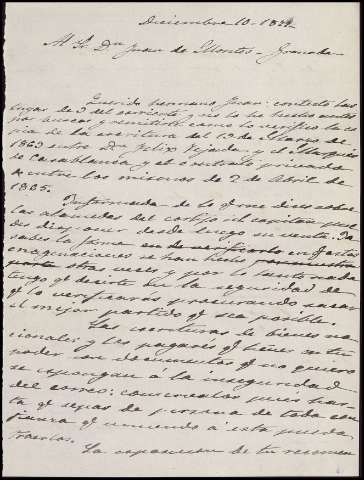 Diciembre 10 - 188
Al Sr. Dn. Juan de Montes - Granada
Querido hermano Juan: contesto las
tuyas de 3 del corriente y no lo he hecho antes
por buscar y remitirte como lo verifico la co
pia de la escritura del 13 de Marzo de
1863 entre Dn Felix Tejada y el Marqués
de Casablanca, y el contrato privado
entre los mismos de 2 de Abril de
1865.
Informada de lo q. me dices sobre
las alamedas del cortijo el capitan pue
des dis oner desde luego su venta. Ya
sabes la forma en q. estas
enagenaciones se han hecho
otras veces y por lo tanto nada
tengo q. decirte en la seguridad de
q. lo verificarás procurando sacar
el mejor partido q. sea posible.
Las escrituras de bienes na
cionales y los pagarés q. tienes en tu
poder son documentos q. no quiero
se espongan á la inseguridad
del correo: consérvalos pues has
ta q. sepas de persona de toda con
fianza q. viniendo á esta pueda
traerlos.
La esposicion de tu